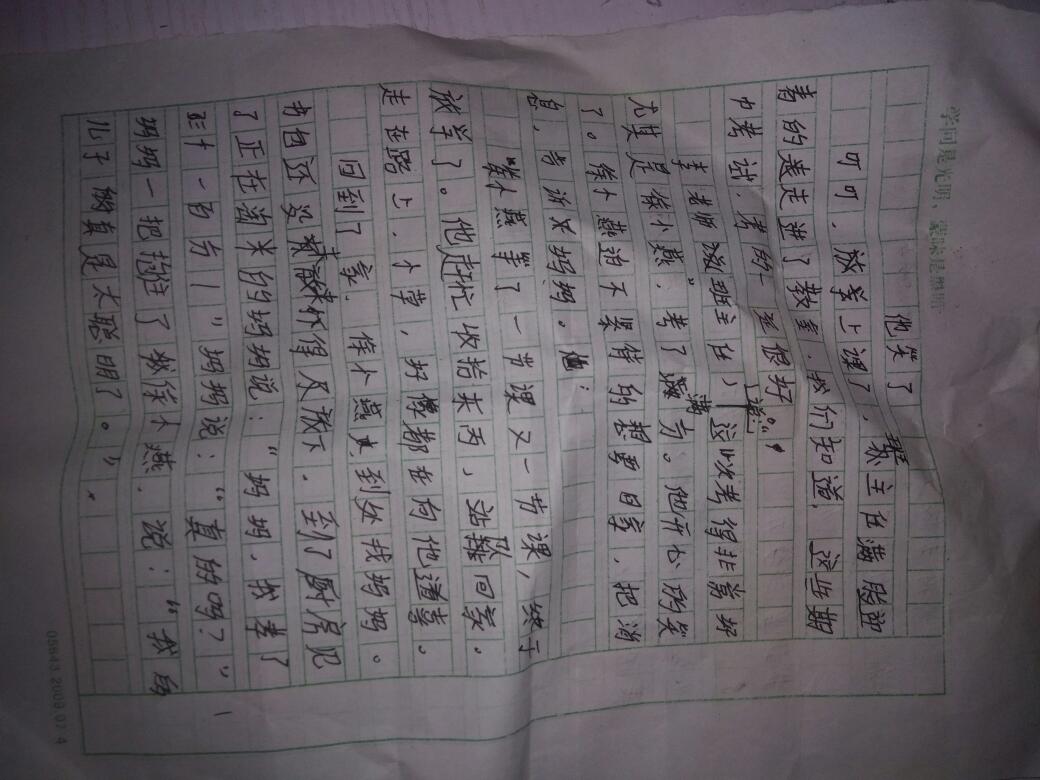 学问是光明，蒙昧是黑暗
他笑了
叮叮，放学上课了，班主任满脸迎
着的走走进了教室，我们知道，这些期
中考试，考的一定很好。
李老师（班主任）道“这次考得非常好
尤其是徐小燕，考了满分。他开心的笑
了。徐小燕迫不及待的想要回家，把消
息，告诉求妈妈。
徐小燕等了一节课又一节课，终于
放学了。他赶忙收拾东西，站队回家。
走在路上，小草，好像都在向他道喜。
回到了家，徐小燕到处找妈妈。
书包还没来得及放下，到了厨房见
了正在淘米的妈妈说：“妈妈，我考了
一百分！”妈妈说：“真的吗？”
妈妈一把抱住了徐小燕，说：“我的
儿子 真是太聪明了。”
05843 2009.07 4